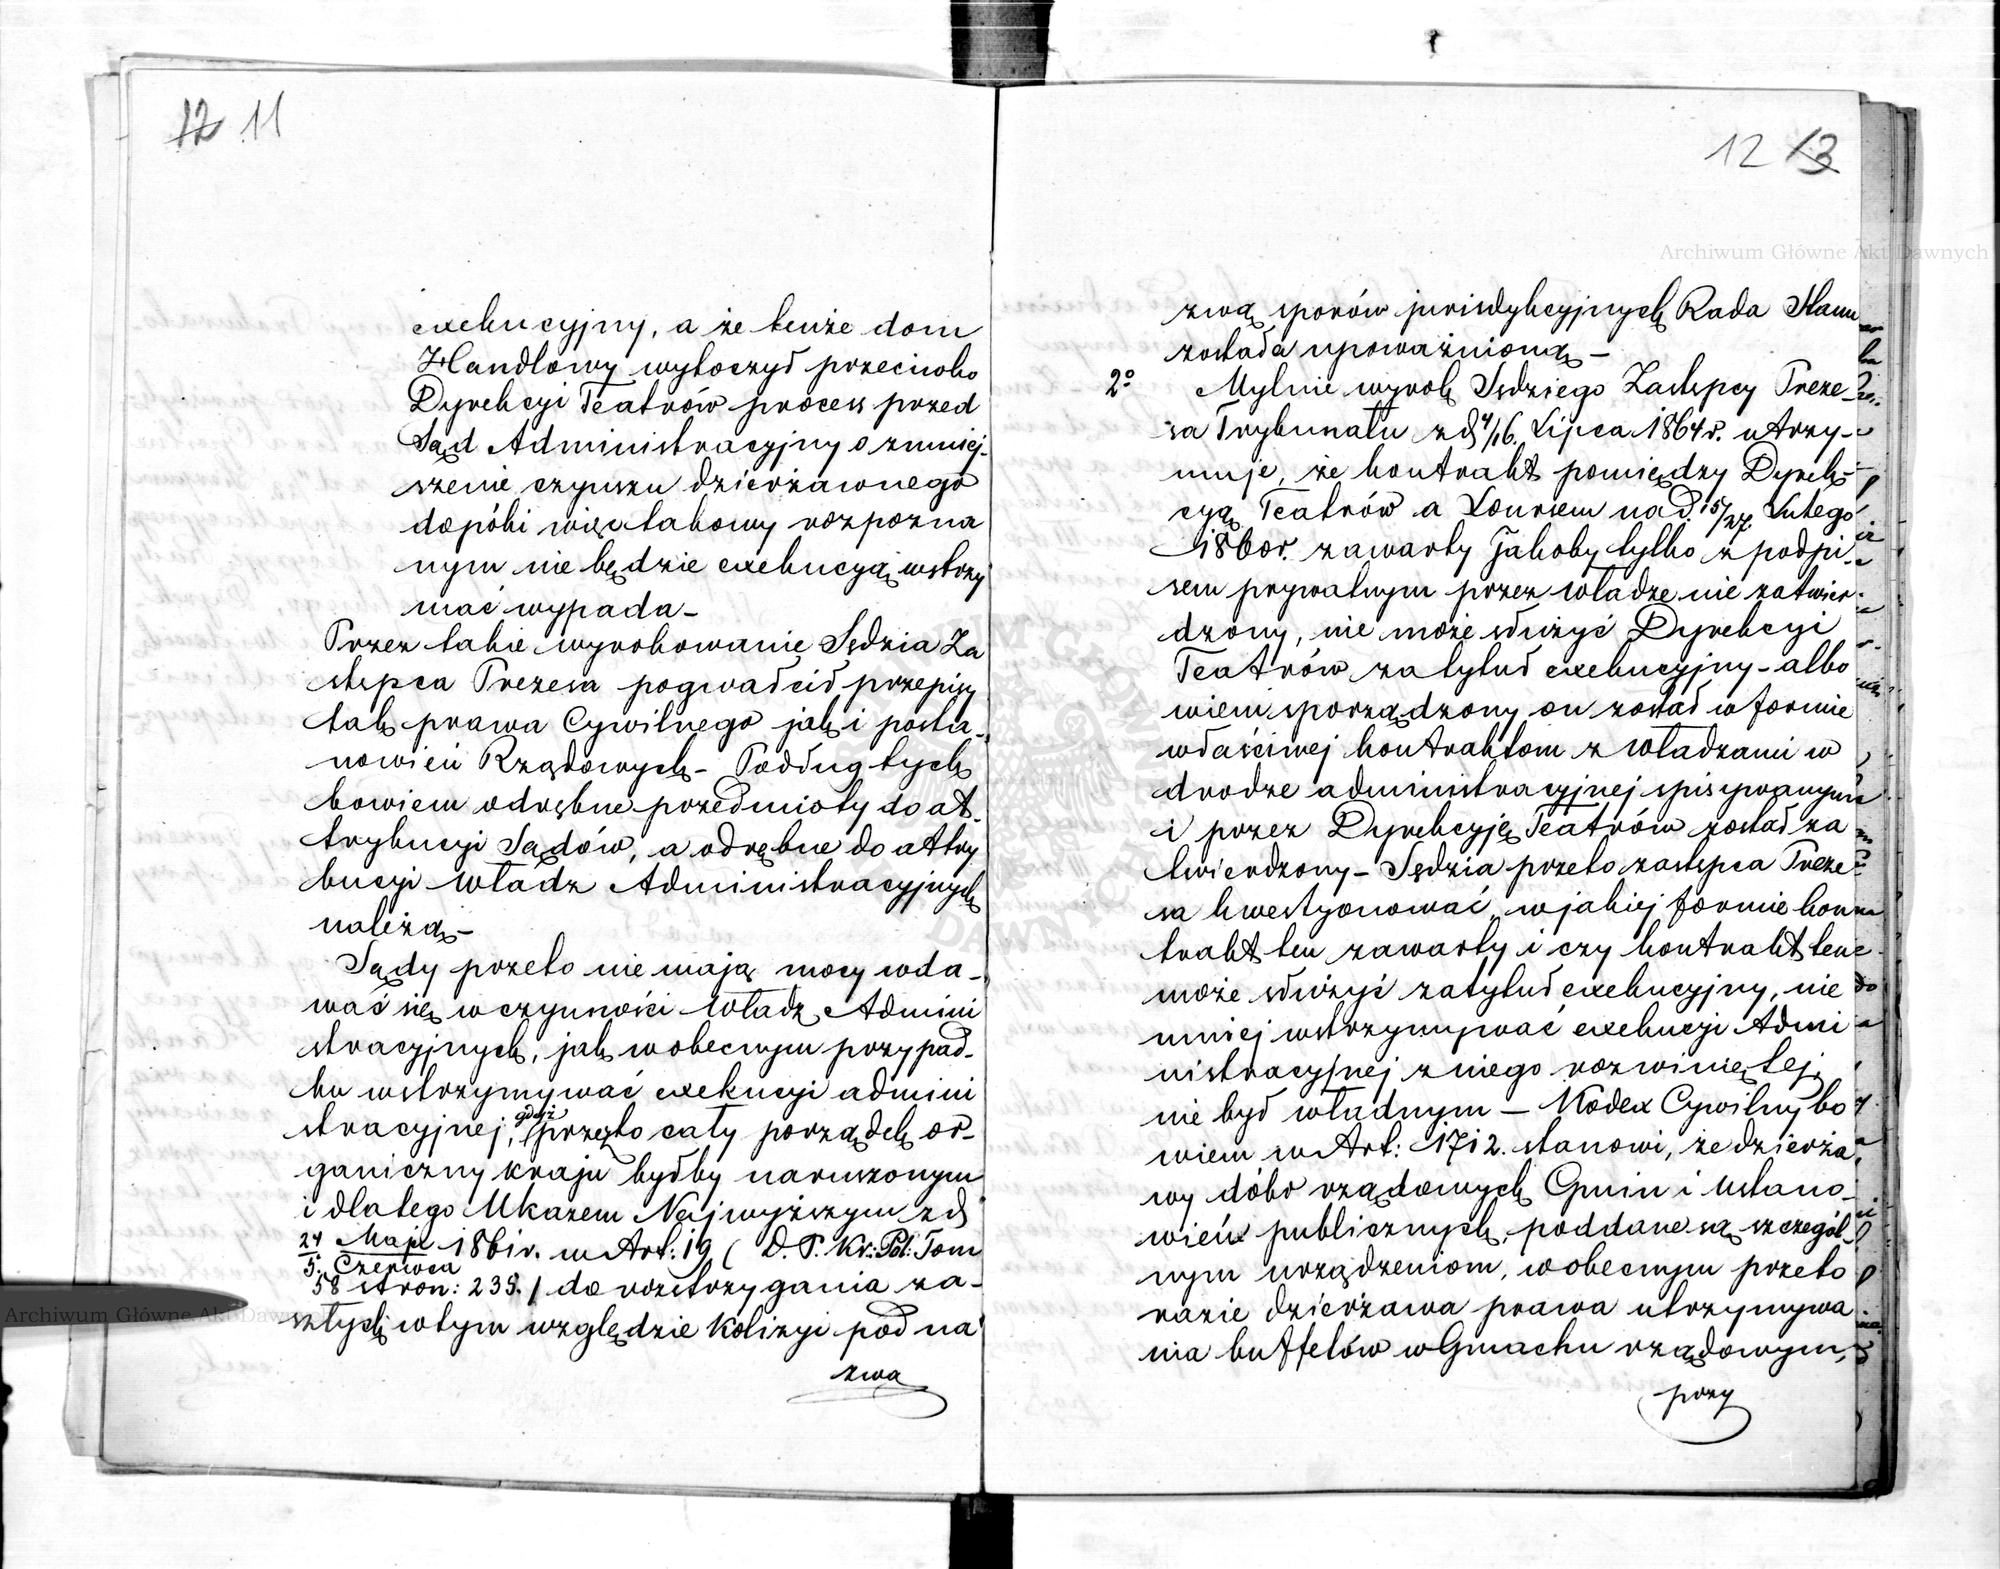 12 11
exekucyjny, a że tenże dom
Handlowy wytoczył przeciwko
Dyrekcyi Teatrów process przed
Sąd Administracyjny o zmniej-
szenie czynszu dzierżawnego
dopóki więc takowy rozpozna
nym nie będzie exekucyą wstrzy
mać wypada -
Przez takie wyrokowanie Sędzia Za
stępca Prezesa pogwałcił przepisy
tak prawa Cywilnego jak i posta-
nowień Rządowych - Podług tych
bowiem odrębne przedmioty do at-
trybucyi Sądów, a odrębne do attry
bucyi Władz Administracyjnych
należą -
Sądy przeto nie mają mocy wda-
wać się w czynności Władz Admini
stracyjnych, jak w obecnym przypad-
ku wstrzymywać exekucyi admini
stracyjnej, gdyż przęto cały porządek or-
ganiczny kraju byłby naruszonym
i dlatego Ukazem Najwyższym z d
24 Maja / 5 Czerwca 1861 r. w Art: 19 ( D. P. Kr: Pol: Tom
58 stron: 235. / do rozstrzygania za-
szłych w tym względzie Kolizyi pod na
zwą
12 13
zwą sporów jurisdykcyjnych Rada Stanu
została upoważnioną -
2° Mylnie wyrok Sędziego Zastępcy Preze-
sa Trybunału z d 4/16. Lipca 1864 r. utrzy-
muje, że kontrakt pomiędzy Dyrek-
cyą Teatrów a Loursem na d. 15/27. Lutego
1860 r. zawarty jakoby tylko z podpi-
sem prywatnym przez władze nie zatwier-
dzony, nie może służyć Dyrekcyi
Teatrów za tytuł exekucyjny - albo
wiem sporządzony on został w formie
właściwej kontraktom z Władzami w
drodze administracyjnej spisywanym
i przez Dyrekcyję Teatrów został za
twierdzony - Sędzia przeto zastępca Preze
sa kwestyonować, w jakiej formie kon
trakt ten zawarty i czy kontrakt ten
może służyć za tytuł exekucyjny, nie
mniej wstrzymywać exekucyi Admi
nistracyjnej z niego rozwiniętej,
nie był władnym - Kodex Cywilny bo
wiem w Art: 1712. stanowi, że dzierża
wy dóbr rządowych Gmin i Ustano-
wień publicznych, poddane są szczegól-
nym urządzeniom, w obecnym przeto
razie dzierżawa prawa utrzymywa
nia buffetów w Gmachu rządowym,
przy
Archiwum Główne Akt Dawnych
Archiwum Główne Akt Dawnych